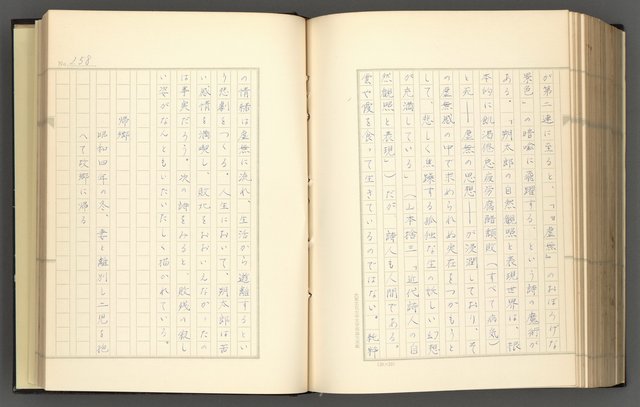 が第二連に至ると、「『虚無』のおぼろげな
景色」の暗喩に飛躍する、という詩の魔術が
ある。「朔太郎の自然観照と表現世界は、根
本的に飢渇倦怠疲労腐錯頽敗(すべて病気)
と死――虚無の思想――が浸潤しており、そ
の虚無感の中で求められぬ実在をつかもうと
して、悲しく焦躁する孤独な生の怪しい幻想
が充満している」(上本捨三『近代詩人の自
然観照と表現』)だが、詩人も人間である。
雲や霞を食って生きているのではない。
No. 258
の情緒は虚無に流れ、生活から遊離するとい
う悲劇をつくる。人生において、朔太郎は苦
い感情を満喫し、敗北をおおいえなかったの
は事実だろう。次の詩をみると、敗残の寂し
い姿がなんともいたいたしく描かれている。
帰郷
昭和四年の冬、妻と離別し二児を抱
へて故郷に帰る